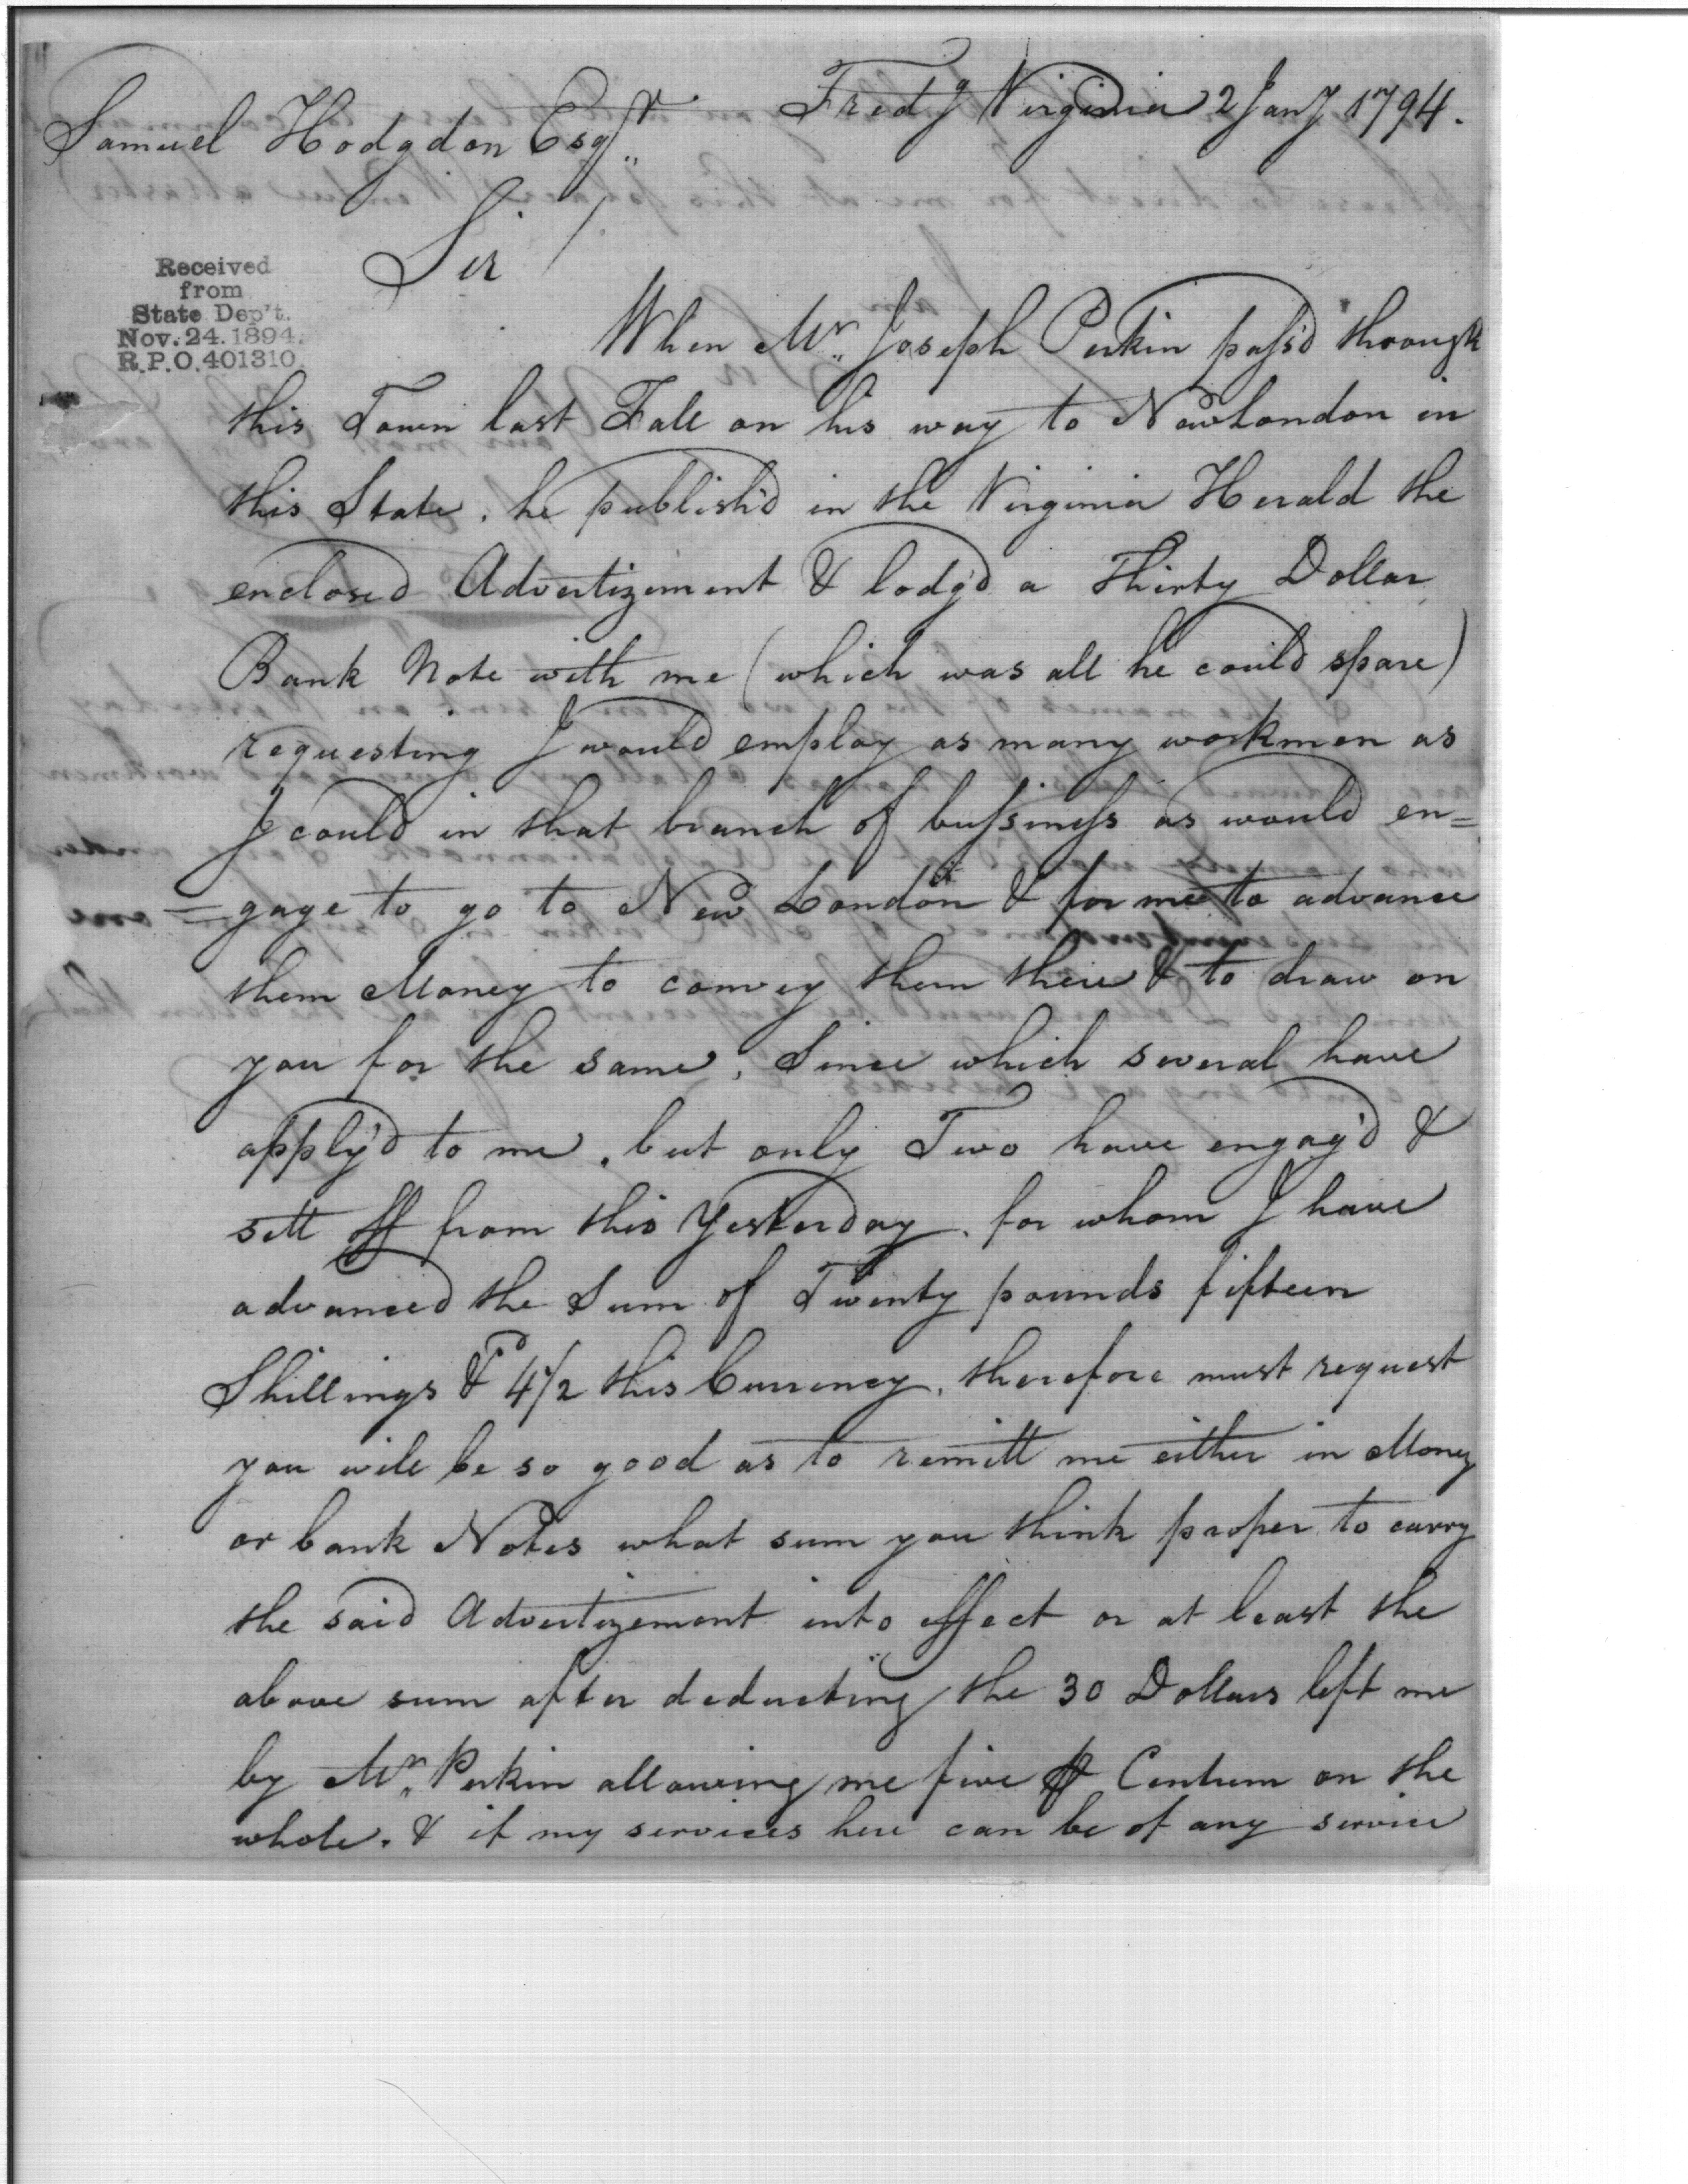 Fredg Virginia 2 Jany 1794.
Samuel Hodgdon Esqr
Sir /.
Received
from
State Dep't.
Nov. 24. 1894.
R.P.O. 401310.
When Mr. Joseph Perkin passd through
this Town last Fall on his way to New London in
this State, he publish'd in the Virginia Herald the
enclosed Advertizement & lodg'd a Thirty Dollar
Bank Note with me (which was all he could spare)
requesting I would employ as many workmen as
I could in that branch of bussiness as would en=
=gage to go to New London & for me to advance
them Money to convey them there & to draw on
you for the same, Since which several have
apply'd to me, but only Two have engag'd &
sett off from this Yesterday, for whom I have
advanced the Sum of Twenty pounds fifteen
Shillings & 4 1/2 this Currency, therefore must request
you will be so good as to remitt me either in Money
or bank Notes what sum you think proper to carry
the said Advertizement into effect or at least the
above sum after deducting the 30 Dollars left me
by Mr. Perkin allowing me five ⅌ Centum on the
whole. & if my services here can be of any service